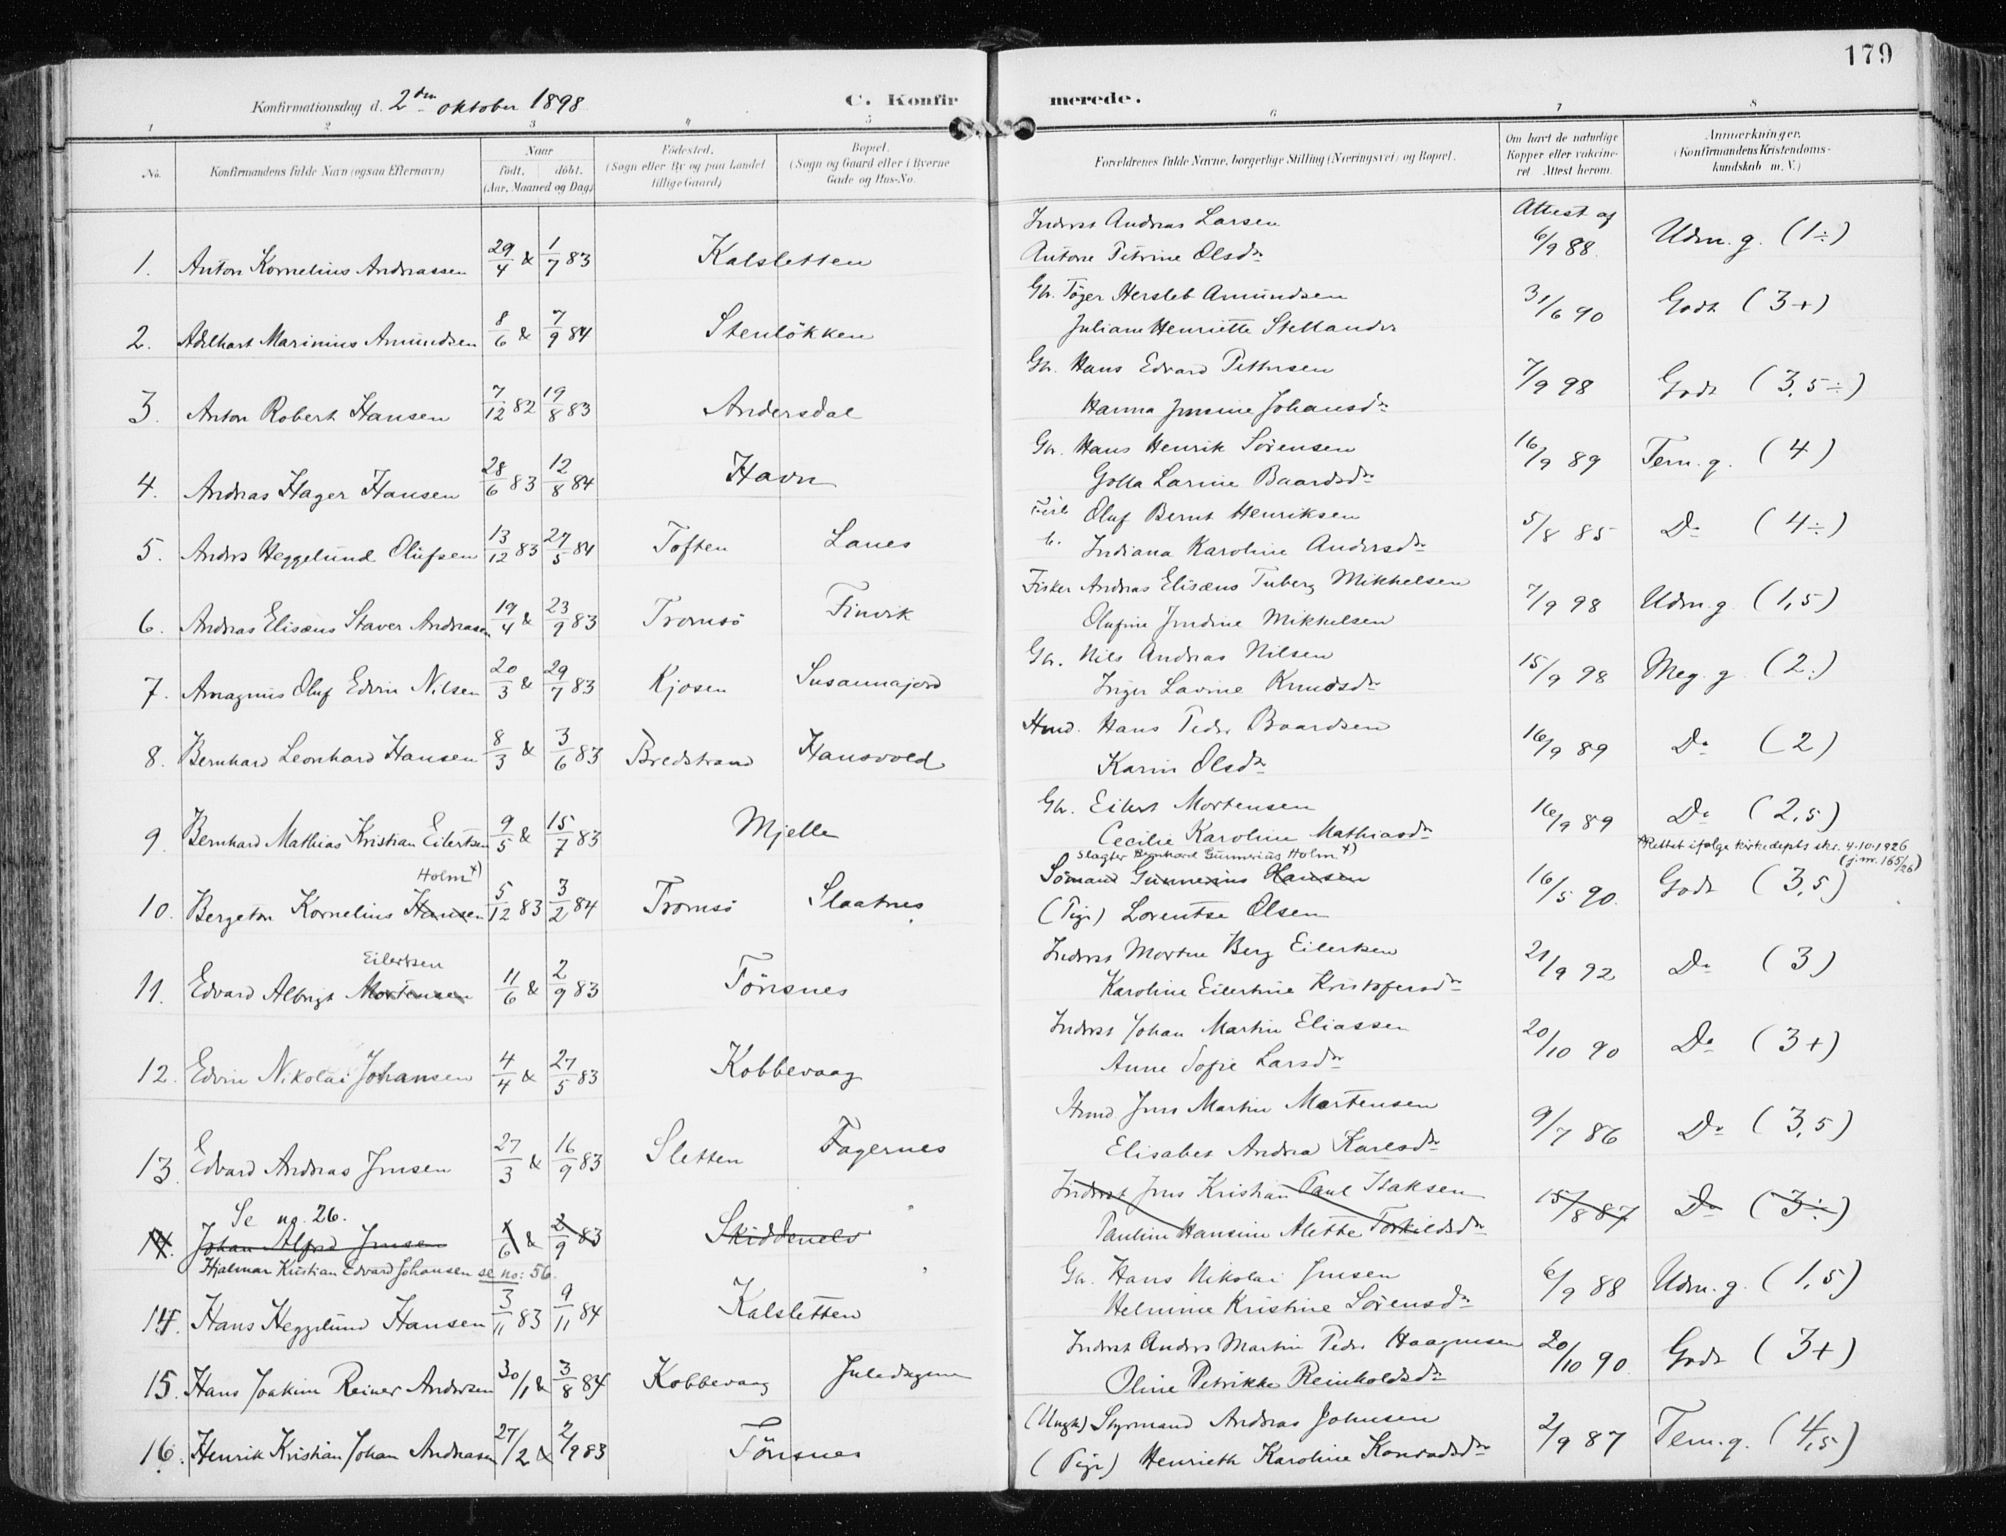 179
Konfirmationsdag d. 2den oktober 1898
C. Konfirmerede.
1 2 3 4 5 6 7 8
No. Konfirmandens fulde Navn (ogsaa Efternavn) Naar født, døbt. (Aar, Maaned og Dag) Fødested. (Sogn eller By og paa Landet tillige Gaard) Bopæl. (Sogn og Gaard eller i Byerne Gade og Hus-No. Forældrenes fulde Navne, borgerlige Stilling (Næringsvei) og Bopæl. Om havt de naturlige Kopper eller vaccineret Attest herom. Anmærkninger. (Konfirmandens Kristendomskundskab m. V.)
Inderst Andreas Larsen Attest af
1. Anton Kornelius Andreassen 29/4 & 1/7 83 Kalsletten Antone Petrine Olsdr 6/9 88. Udm. g. (1÷)
Gbr. Töger Hersleb Amundsen
2. Adelhart Marinius Amundsen 8/6 & 7/9 84 Stenlökken Juliane Henriette 31/6 90 Godt (3+)
Gbr. Hans Edvard Pettersen
3. Anton Robert Hansen 7/12 82 19/8 83 Andersdal Hanna Jensine Johansdr 7/9 98 Godt (3,5÷)
Gbr. Hans Henrik Sörensen
4. Andreas Hager Hansen 28/6 83 12/8 84 Havn Golla Larine Baardsdr 16/9 89 Tem. g. (4)
Oluf Bernt Henriksen
5. Anders Heggelund Olufsen 13/12 83 27/5 84 Toften Lanes Indiana Karoline Andersdr 5/8 85 Do (4÷)
Fisker Andreas Elisæus Tuberg Mikkelsen
6. Andreas Elisæus Staver Andreasen 19/4 & 23/9 83 Tromsö Finvik Olufine Jendine Mikkelsen 7/9 98 Udm. g. (1,5)
Gbr. Nils Andreas Nilsen
7. Amagnus Oluf Edvin Nilsen 20/3 & 29/7 83 Kjosen Susannajord Inger Lavine Knudsdr 15/9 98 Meg. g. (2÷)
Hmd. Hans Peder Baardsen
8. Bernhard Leonhard Hansen 8/3 & 3/6 83 Bredstrand Hansvold Karin Olsdr 16/9 89 Do (2)
Gbr. Eilert Mortensen
9. Bernhard Mathias Kristian Eilertsen 9/5 & 15/7 83 Mjelle Cecilie Karoline Mathiasdr 16/9 89 Do (2,5)
Slagter Bernhard Gunnerius Holm +) + Rettet ifølge kirkedepts skr. 4.10.1926 (j.nr. 165/26)
Holm +) Sömand Gunnerius Hansen
10. Bergeton Kornelius Hansen 5/12 83 3/2 84 Tromsö Slaatnes (Pige) Lorentse Olsen 16/5 90. Godt (3,5)
Eilertsen Inderst Morten Berg Eilertsen
11. Edvard Albrigt Mortensen 11/6 & 2/9 83 Tönsnes Karoline Eilertine Kristofersdr 21/9 92 Do (3)
Inderst Johan Martin Eliassen
12. Edvin Nikolai Johansen 4/4 & 27/5 83 Kobbevaag Anne Sofie Larsdr 20/10 90 Do (3+)
Hmd. Jens Martin Martensen
13. Edvard Andreas Jensen 27/3 & 16/9 83 Sletten Fagernes Elisabet Andrea Karlsdr 9/7 86 Do (3,5)
Se no. 26. Inderst Jens Kristian Paul Isaksen
14. Johan Alfred Jensen 1/6 & 2/9 83 Skiddenelv Pauline Hansine Alette Torkildsdr 15/8 87 Do (3÷)
Hjalmar Kristian Edvard Johansen se no: 56.
Gbr. Hans Nikolai Jensen
14. Hans Heggelund Hansen 3/11 83 9/11 84 Kalsletten Helmine Kristine Sörensdr 6/9 88 Udm. g. (1,5)
Inderst Anders Martin Peder Haagensen
15. Hans Joakim Reiner Andersen 30/1 & 3/8 84 Kobbevaag Oline Petrikke Reinholdsdr 20/10 90. Godt (3+)
(Ungk) Styrmand Andreas Johnsen
16. Henrik Kristian Johan Andreasen 27/2 & 2/9 83 Tönsnes (Pige) Henriette Karoline Konradsdr 2/9 87 Tem. g. (4,5)